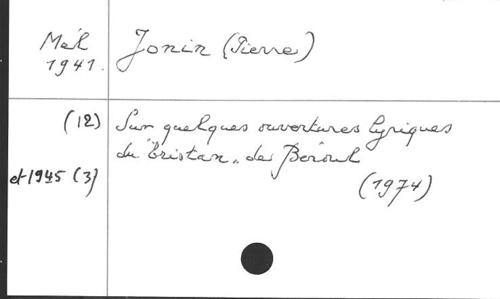 Mél Jonin (Pierre)
1941.
(12) Sur quelques ouvertures lyriques
du "Tristan" de Béroul
et 1945 (3) (1974)